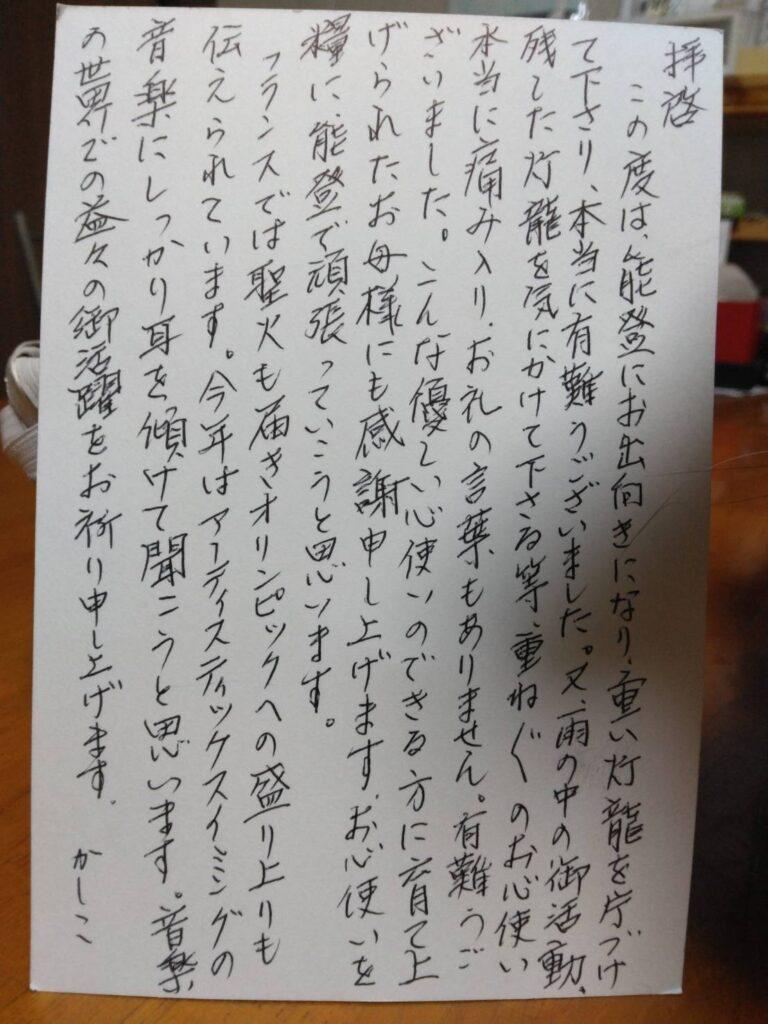 拝啓
この度は、能登にお出向きになり、重い灯籠を片づけ
て下さり、本当に有難うございました。又、雨の中の御活動、
残した灯籠を気にかけて下さる等、重ね〴〵のお心使い
本当に痛み入り、お礼の言葉もありません。有難うご
ざいました。こんな優しい心使いのできる方に育て上
げられたお母様にも感謝申し上げます。お心使いを
糧に、能登で頑張っていこうと思います。
フランスでは聖火も届きオリンピックへの盛り上りも
伝えられています。今年はアーティスティックスイミングの
音楽にしっかり耳を傾けて聞こうと思います。音楽
の世界での益々の御活躍をお祈り申し上げます。 かしこ